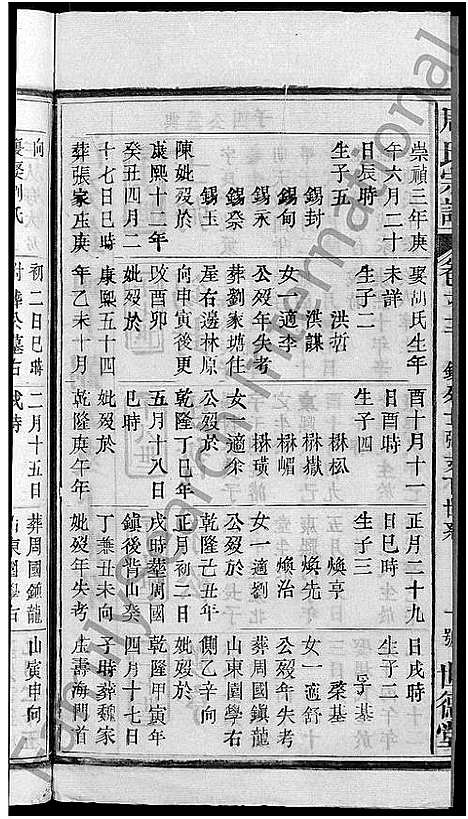 周氏宗譜
世德堂
崇禎三年庚
年六月二十
日辰時
生子五
錫封
錫甸
錫永
錫祭
錫玉
陳妣歿於
康熙十二年
癸丑四月二
十七日巳時
葬張家庄庚
向
劉氏
娶胡氏生年
未詳
生子二
洪哲
洪謀
女一適李
公歿年失考
葬劉家塆住
屋右邊林原
向申寅後更
改酉卯
妣歿於
康熙五十四
年乙未十月
初二日巳時
祔葬公墓右
酉十月十一
日酉時
生子四
楙松
楙嶽
楙嵋
楙璜
女一適余
乾隆丁巳年
五月十八日
巳時
妣歿於
乾隆庚午年
二月十五日
戌時
正月二十九
日巳時
生子三
煥亨
煥先
煥治
女一適劉
公歿於
乾隆己丑年
正月初二日
戌時葬周國
鎮後背山癸
丁兼丑未向
妣歿年失考
葬周國鎮龍
山東園學右
日戌時
生子二
子基
棨基
女一適舒
公歿年失考
葬周國鎮龍
山東園學右
側乙辛向
乾隆甲寅年
四月十七日
子時葬魏家
庄壽海門首
山寅申向
Familysearch International